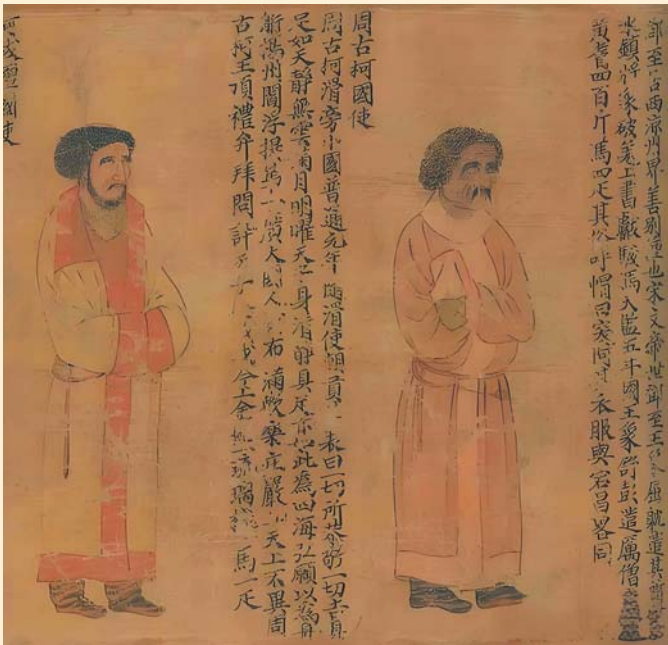 鄧至居西涼州界羌別種也宋文帝世鄧至王象屈躭遣其所
水鎮將象破羌上書獻駿馬天監五年國王象舒彭遣厲僧
黃耆四百斤馬四疋其俗呼帽曰突何其衣服與宕昌畧同
周古柯國使
周古柯滑旁小國普通元年隨滑使朝貢表曰一切所恭敬一切吉具
足如天靜無雲滿月明曜天子身清靜具足亦如此為四海弘願以為舟
航楊州閻浮提第一廣大國人布滿歡樂莊嚴如天上不異周
古柯王頂禮弁拜問訊天子今上金椀一琉璃椀一馬一疋
呵跋檀國使